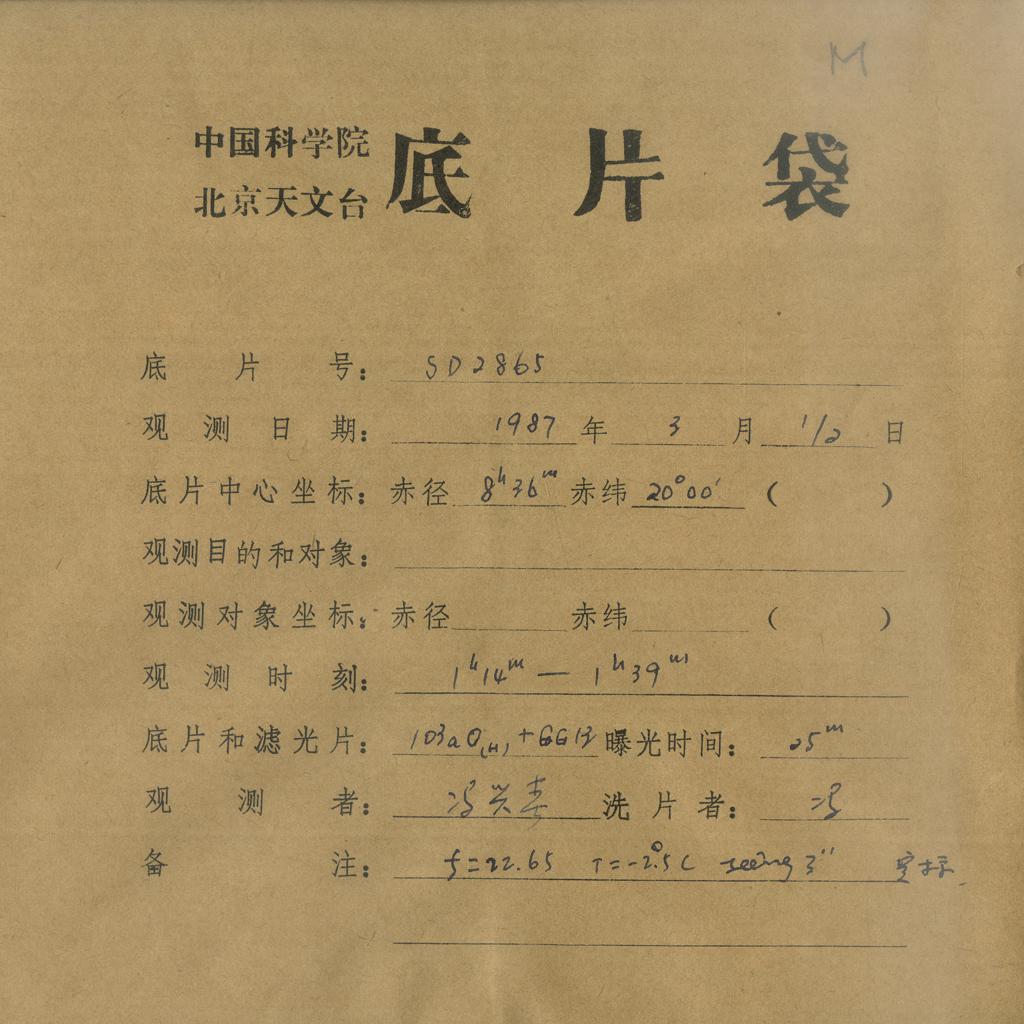 M
中国科学院
北京天文台
底片袋
底片号： SD2865
观测日期： 1987年 3月 1/2日
底片中心坐标：赤径 8h36m 赤纬 20°00′ （ ）
观测目的和对象：
观测对象坐标：赤径 赤纬 （ ）
观测时刻： 1h14m — 1h39m
底片和滤光片： 103aO(H)+GG13 曝光时间： 25m
观测者： 冯兴 洗片者： 冯
备注： f=22.65 T=-2.5°C seeing 3″